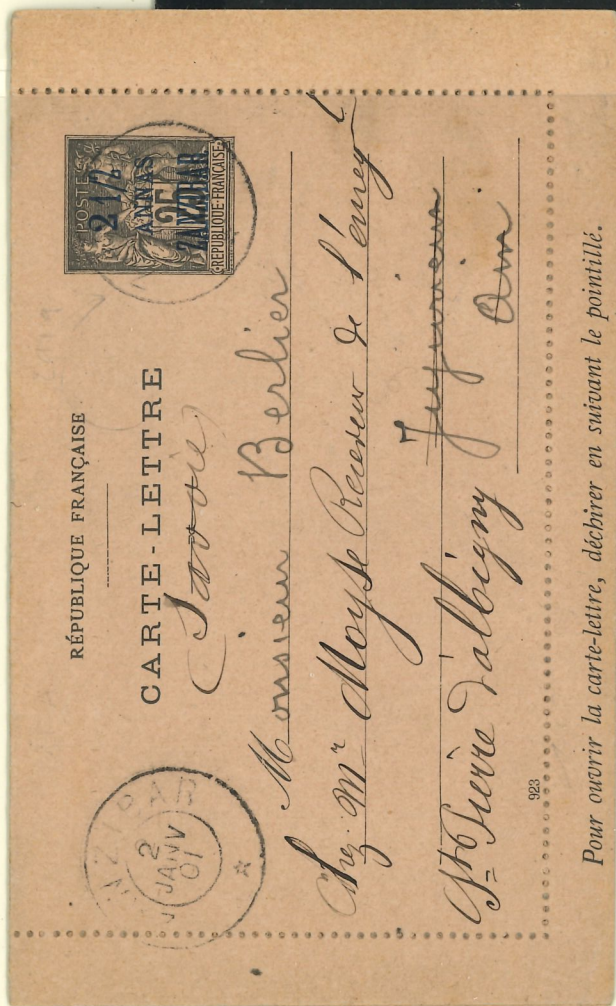 RÉPUBLIQUE FRANÇAISE
CARTE-LETTRE
POSTES
2 1/2
ANNAS
ZANZIBAR
25
RÉPUBLIQUE-FRANÇAISE
ZANZIBAR
2
JANV
01
(Savoie)
Monsieur Berlier
Chez Mr Moyse Receveur de l'enregt
Jujurieux
St Pierre d'albigny
Ain
923
Pour ouvrir la carte-lettre, déchirer en suivant le pointillé.